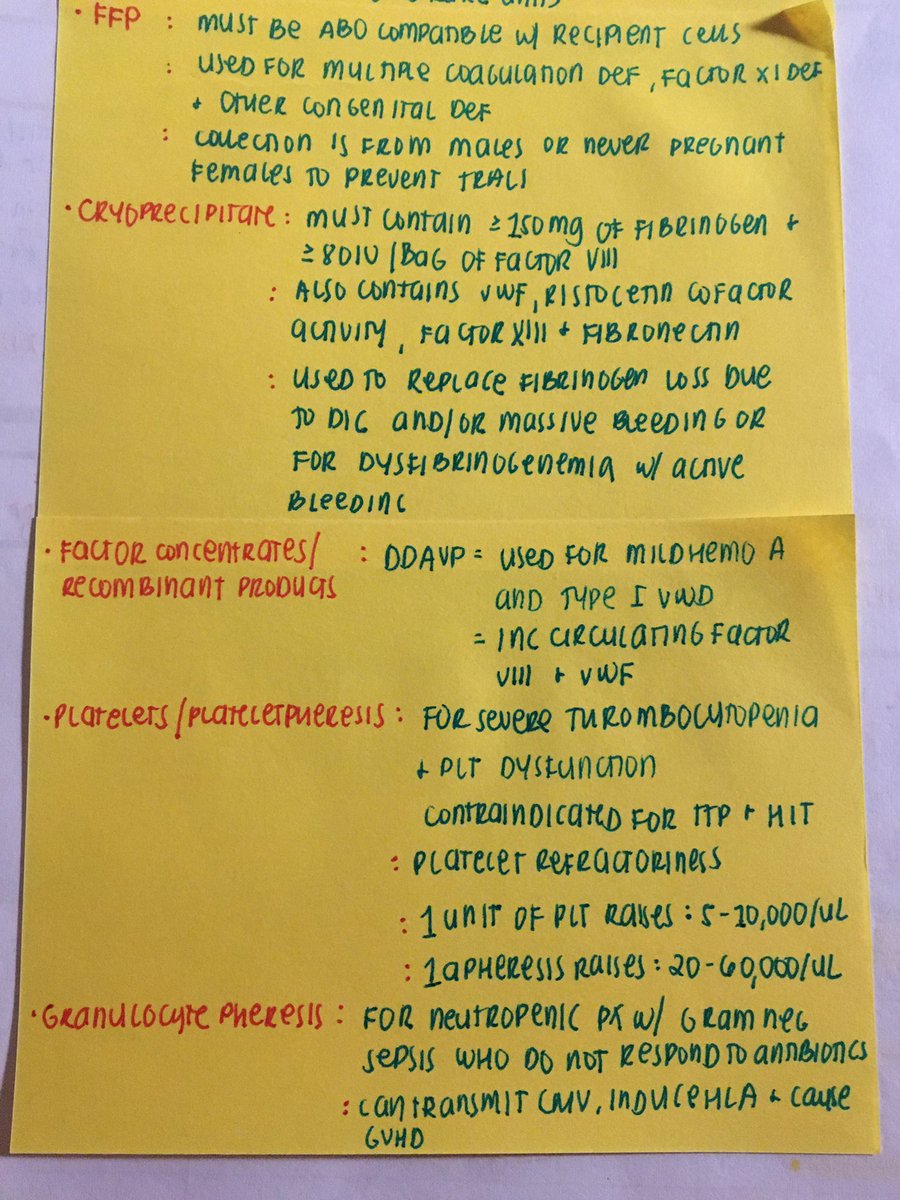 • FFP : MUST BE ABO COMPATIBLE W/ RECIPIENT CELLS
: USED FOR MULTIPLE COAGULATION DEF, FACTOR XI DEF
+ OTHER CONGENITAL DEF
: COLLECTION IS FROM MALES OR NEVER PREGNANT
FEMALES TO PREVENT TRALI
• CRYOPRECIPITATE : MUST CONTAIN ≥150mg OF FIBRINOGEN +
≥80IU/BAG OF FACTOR VIII
: ALSO CONTAINS VWF, RISTOCETIN COFACTOR
ACTIVITY, FACTOR XIII + FIBRONECTIN
: USED TO REPLACE FIBRINOGEN LOSS DUE
TO DIC AND/OR MASSIVE BLEEDING OR
FOR DYSFIBRINOGENEMIA W/ ACTIVE
BLEEDING
• FACTOR CONCENTRATES/ : DDAVP = USED FOR MILD HEMO A
RECOMBINANT PRODUCTS AND TYPE I VWD
= INC CIRCULATING FACTOR
VIII + VWF
• PLATELETS/PLATELETPHERESIS : FOR SEVERE THROMBOCYTOPENIA
+ PLT DYSFUNCTION
CONTRAINDICATED FOR TTP + HIT
: PLATELET REFRACTORINESS
: 1 UNIT OF PLT RAISES : 5-10,000/UL
: 1 APHERESIS RAISES : 20-60,000/UL
• GRANULOCYTE PHERESIS : FOR NEUTROPENIC PX W/ GRAM NEG
SEPSIS WHO DO NOT RESPOND TO ANTIBIOTICS
: CAN TRANSMIT CMV, INDUCE HLA + CAUSE
GVHD